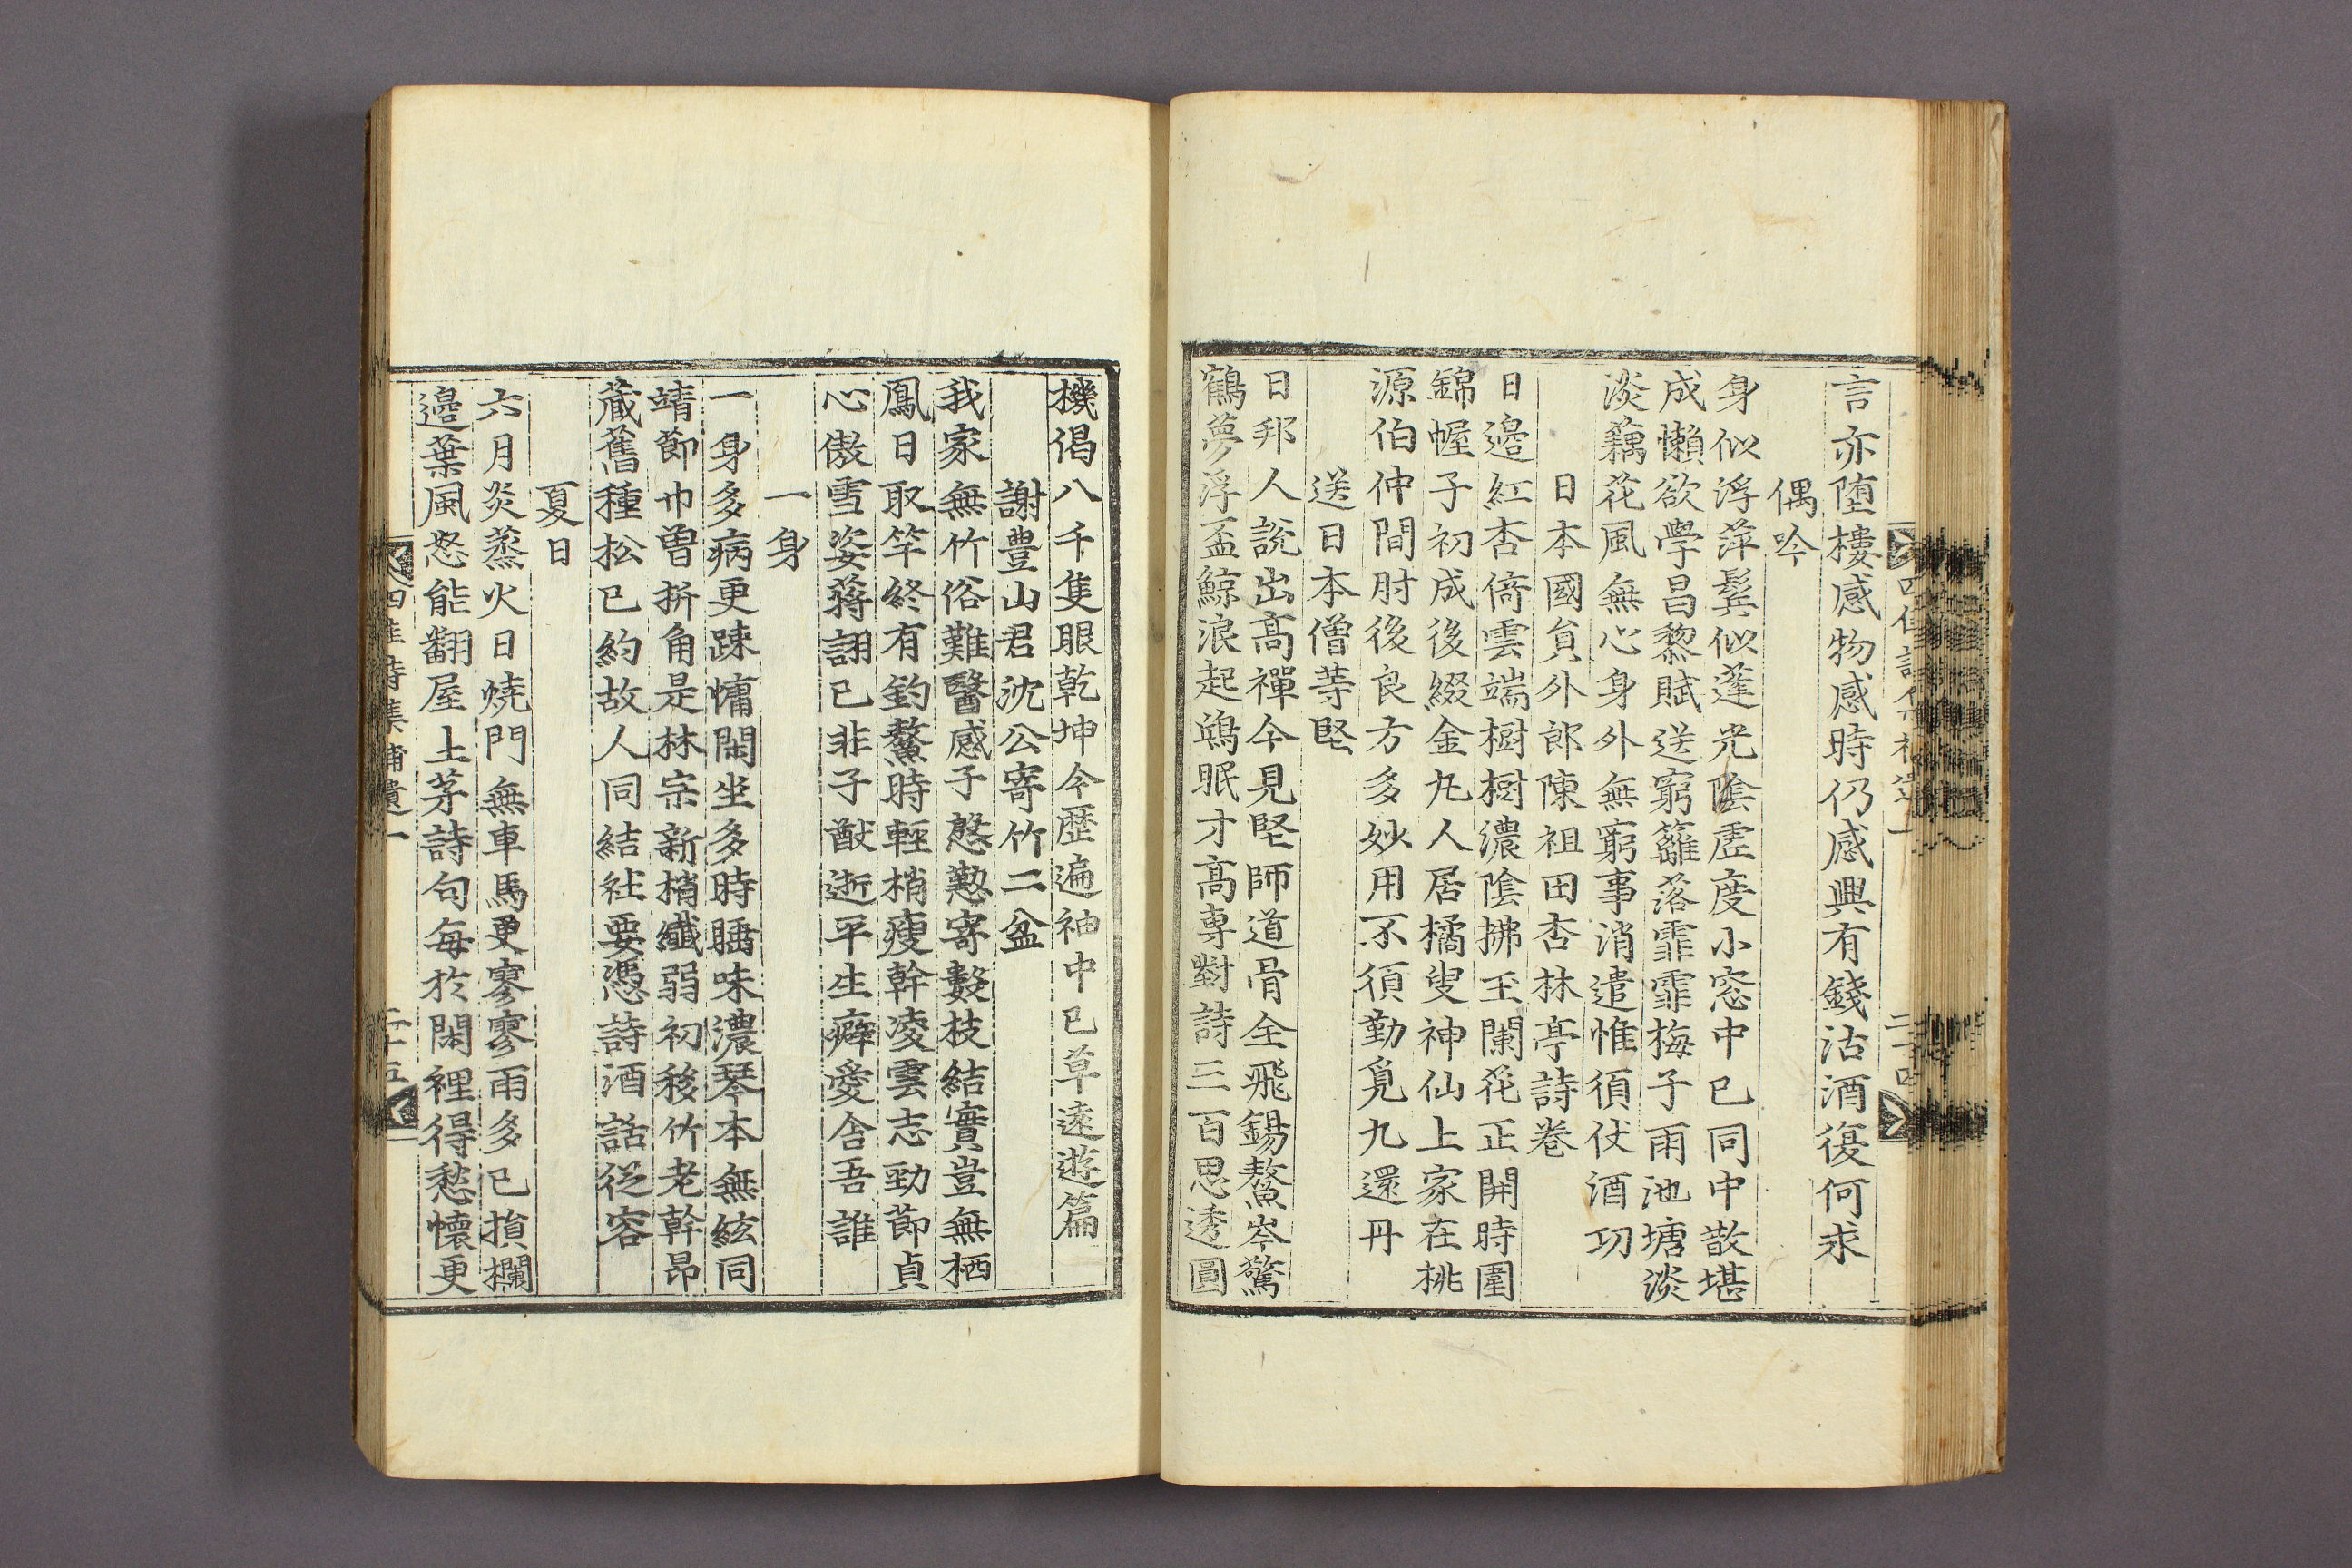 言亦堕樓感物感時仍感興有錢沽酒復何求
偶吟
身似浮萍鬂似蓬光陰虛度小窓中已同中散堪
成懶欲學昌黎賦送窮籬落霏霏梅子雨池塘淡
淡藕花風無心身外無窮事消遣惟須伏酒功
日本國貟外郎陳祖田杏林亭詩巻
日邊紅杏倚雲端樹樹濃陰拂玉闌花正開時圍
錦幄子初成後綴金丸人居橘叟神仙上家在桃
源伯仲間肘後良方多妙用不須勤覓九還丹
送日本僧等堅
日邦人說出高禪今見堅師道骨全飛錫鰲岑驚
鶴夢浮盃鯨浪起鴎眠才高專對詩三百思透圓
機偈八千隻眼乾坤今歷遍袖中已草遠遊篇
謝豊山君沈公寄竹二盆
我家無竹俗難醫感子慇懃寄數枝結實豈無栖
鳳日取竿終有釣鰲時輕梢瘦幹凌雲志勁節貞
心傲雪姿蔣詡已非子猷逝平生癖愛舍吾誰
一身
一身多病更踈慵閑坐多時睡味濃琴本無絃同
靖節巾曽折角是林宗新梢纖弱初移竹老幹昂
藏舊種松已約故人同結社要憑詩酒話從容
夏日
六月炎蒸火日燒門無車馬更寥寥雨多已損欄
邊葉風怒能翻屋上茅詩句每於閑裡得愁懷更
四佳詩集補遺一
二十五